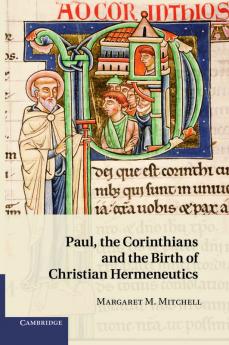 AD CORINTHIOS
dei que est corinthi cu
nibꝫ qui sunt in uniue
uobis & pax
Paul, the Corinthians
and the Birth of
Christian Hermeneutics
MARGARET M. MITCHELL
CAMBRIDGE